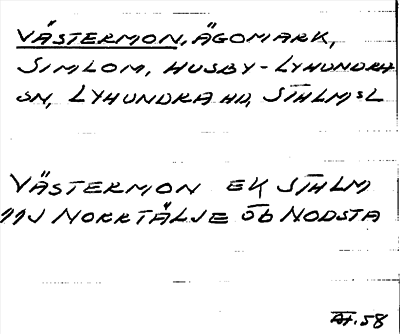 VÄSTERMON, ÄGOMARK,
SIMLOM, HUSBY-LYHUNDRA
SN, LYHUNDRA HD, STHLMSL
VÄSTERMON EK STHLM
11J NORRTÄLJE ÖB NODSTA
58